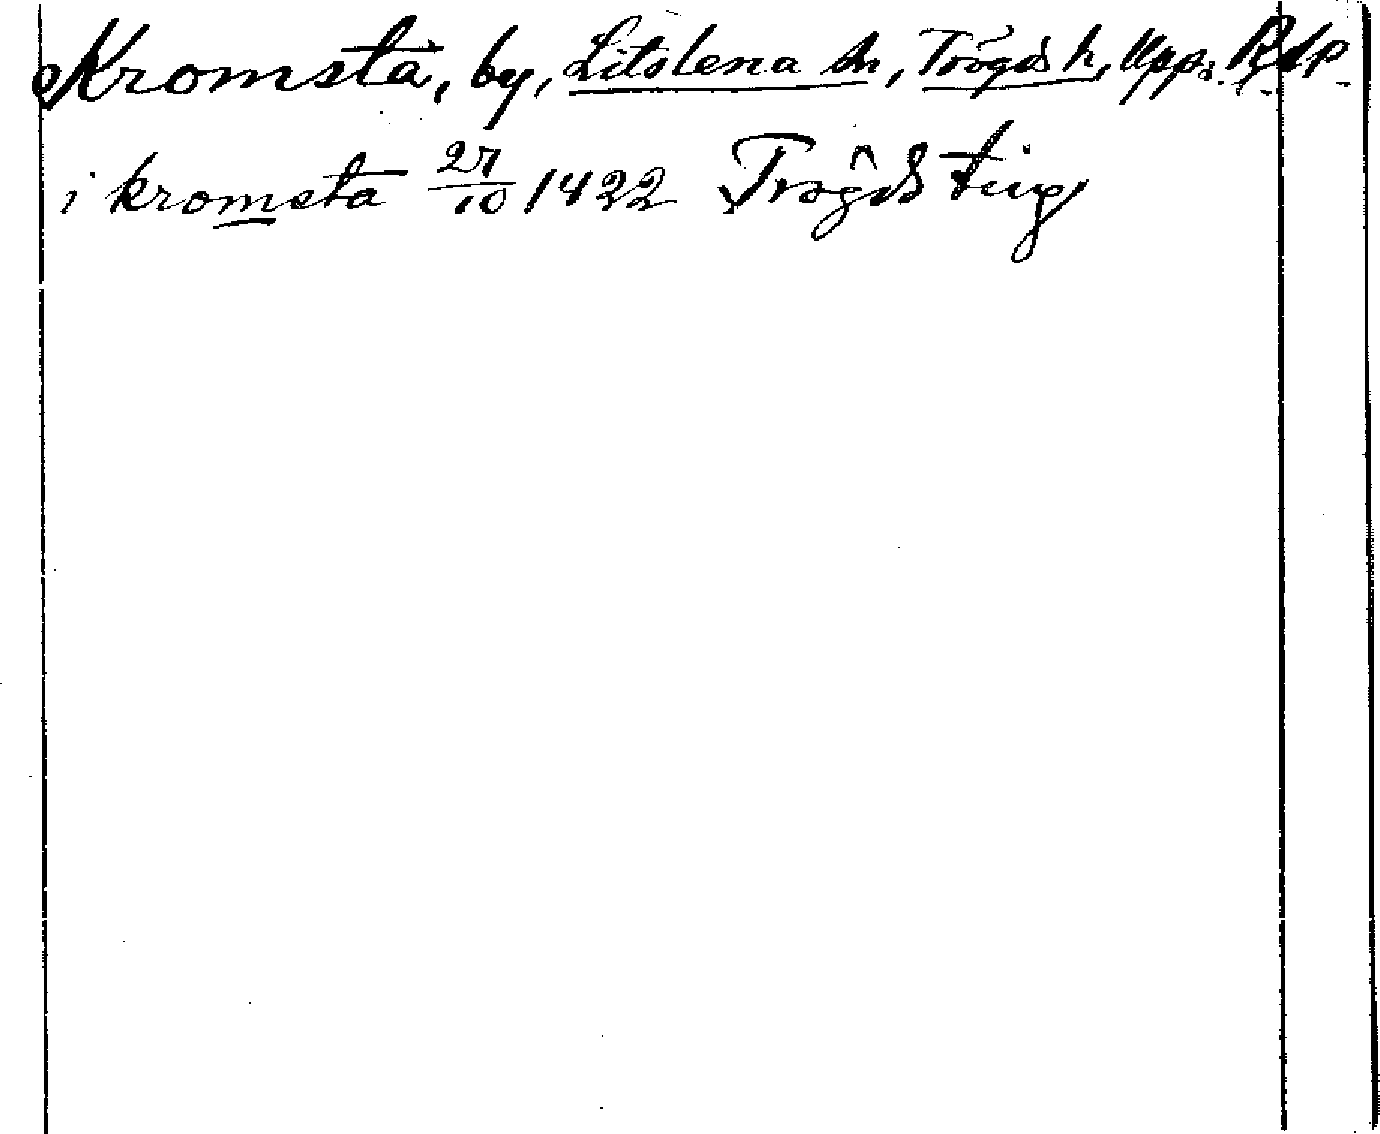 Kromsta, by, Litslena sn, Trögds h, Upp. RAp
i kromsta 27/10 1422 Trögds ting